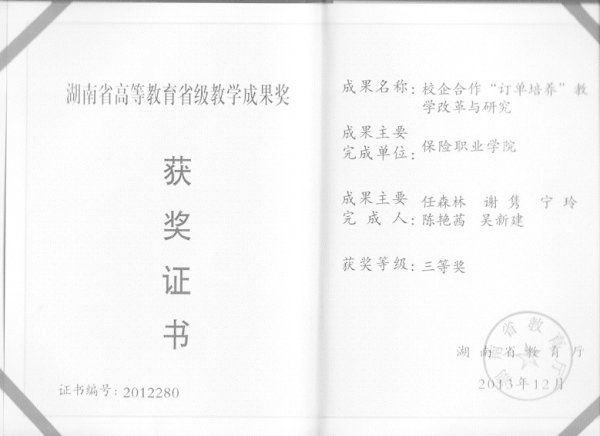 湖南省高等教育省级教学成果奖
获
奖
证
书
证书编号：2012280
成果名称：校企合作“订单培养”教
学改革与研究
成果主要
完成单位：保险职业学院
成果主要 任森林 谢隽 宁玲
完成人：陈艳茜 吴新建
获奖等级：三等奖
湖南省教育厅
2013年12月
湖南省教育厅